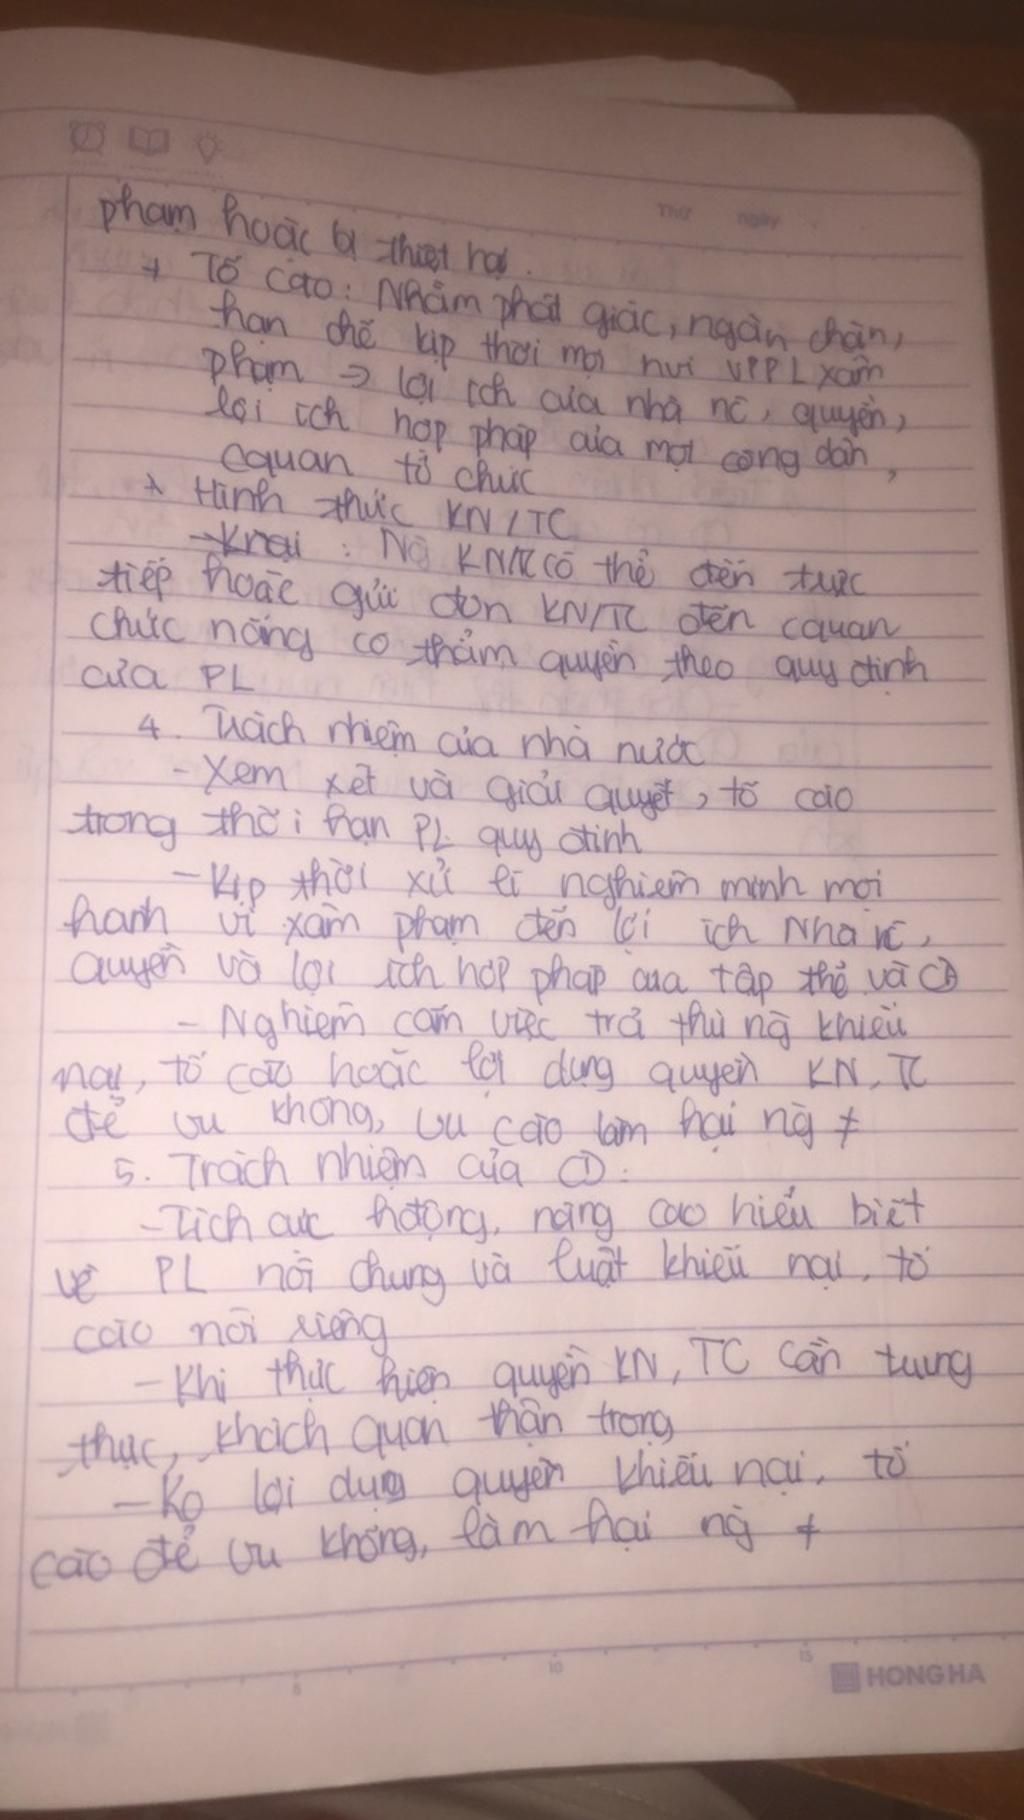 Thứ ngày
phạm hoặc bị thiệt hại.
+ Tố cáo: Nhằm phát giác, ngăn chặn,
hạn chế kịp thời mọi hvi VPPL xâm
phạm → lợi ích của nhà nc, quyền,
lợi ích hợp pháp của mọi công dân,
cquan tổ chức
+ Hình thức KN/TC
: Ng KN/TC có thể đến trực
tiếp hoặc gửi đơn KN/TC đến cquan
chức năng có thẩm quyền theo quy định
của PL
4. Trách nhiệm của nhà nước
- Xem xét và giải quyết, tố cáo
trong thời hạn PL quy định
- Kịp thời xử lí nghiêm minh mọi
hành vi xâm phạm đến lợi ích Nhà nc,
quyền và lợi ích hợp pháp của tập thể và CD
- Nghiêm cấm việc trả thù ng khiếu
nại, tố cáo hoặc lợi dụng quyền KN, TC
để vu khống, vu cáo làm hại ng ≠
5. Trách nhiệm của CD:
- Tích cực hđộng, nâng cao hiểu biết
về PL nói chung và luật khiếu nại, tố
cáo nói riêng
- Khi thực hiện quyền KN, TC cần trung
thực, khách quan thận trọng
- Ko lợi dụng quyền khiếu nại, tố
cáo để vu khống, làm hại ng ≠
5 10 15
HONG HA